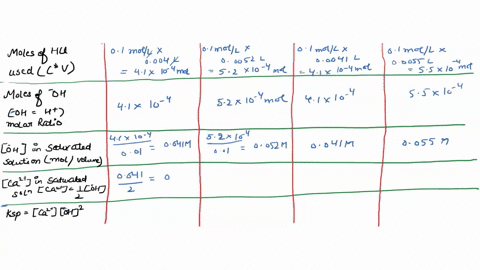 Moles of HCl
used (C*V)
0.1 mol/L x
0.004L
= 4.1 x 10⁻⁴ mol
0.1 mol/L x
0.0052 L
= 5.2 x 10⁻⁴ mol
0.1 mol/L x
0.0041 L
= 4.1 x 10⁻⁴ mol
0.1 mol/L x
0.0055 L
= 5.5 x 10⁻⁴
Moles of ⁻OH
(OH = H⁺)
molar Ratio
4.1 x 10⁻⁴
5.2 x 10⁻⁴ mol
4.1 x 10⁻⁴
5.5 x 10⁻⁴
[OH] in Saturated
solution (mol) volume)
4.1 x 10⁻⁴
0.01 = 0.041M
5.2 x 10⁻⁴
0.01 = 0.052M
0.041 M
0.055 M
[Ca²⁺] in saturated
soln [Ca²⁺] = 1/2 [OH]
0.041
2 = 0
Ksp = [Ca²⁺] [OH]²